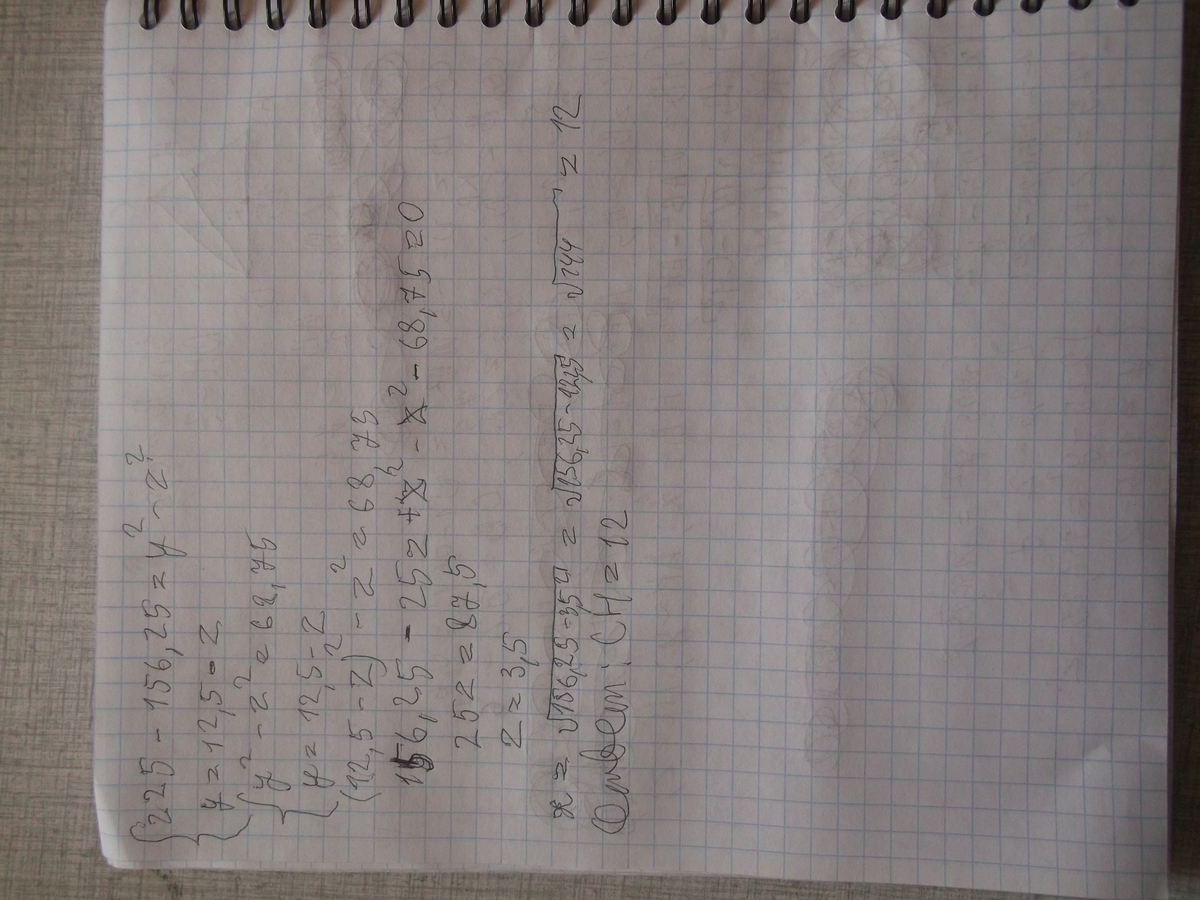 {225 - 156,25 = y² - z²
{y = 12,5 - z
{y² - z² = 68,75
{y = 12,5 - z
(12,5 - z)² - z² = 68,75
156,25 - 25z + z² - z² - 68,75 = 0
25z = 87,5
z = 3,5
x = √156,25 - 3,5² = √156,25 - 12,25 = √144 = 12
Ответ: CH = 12